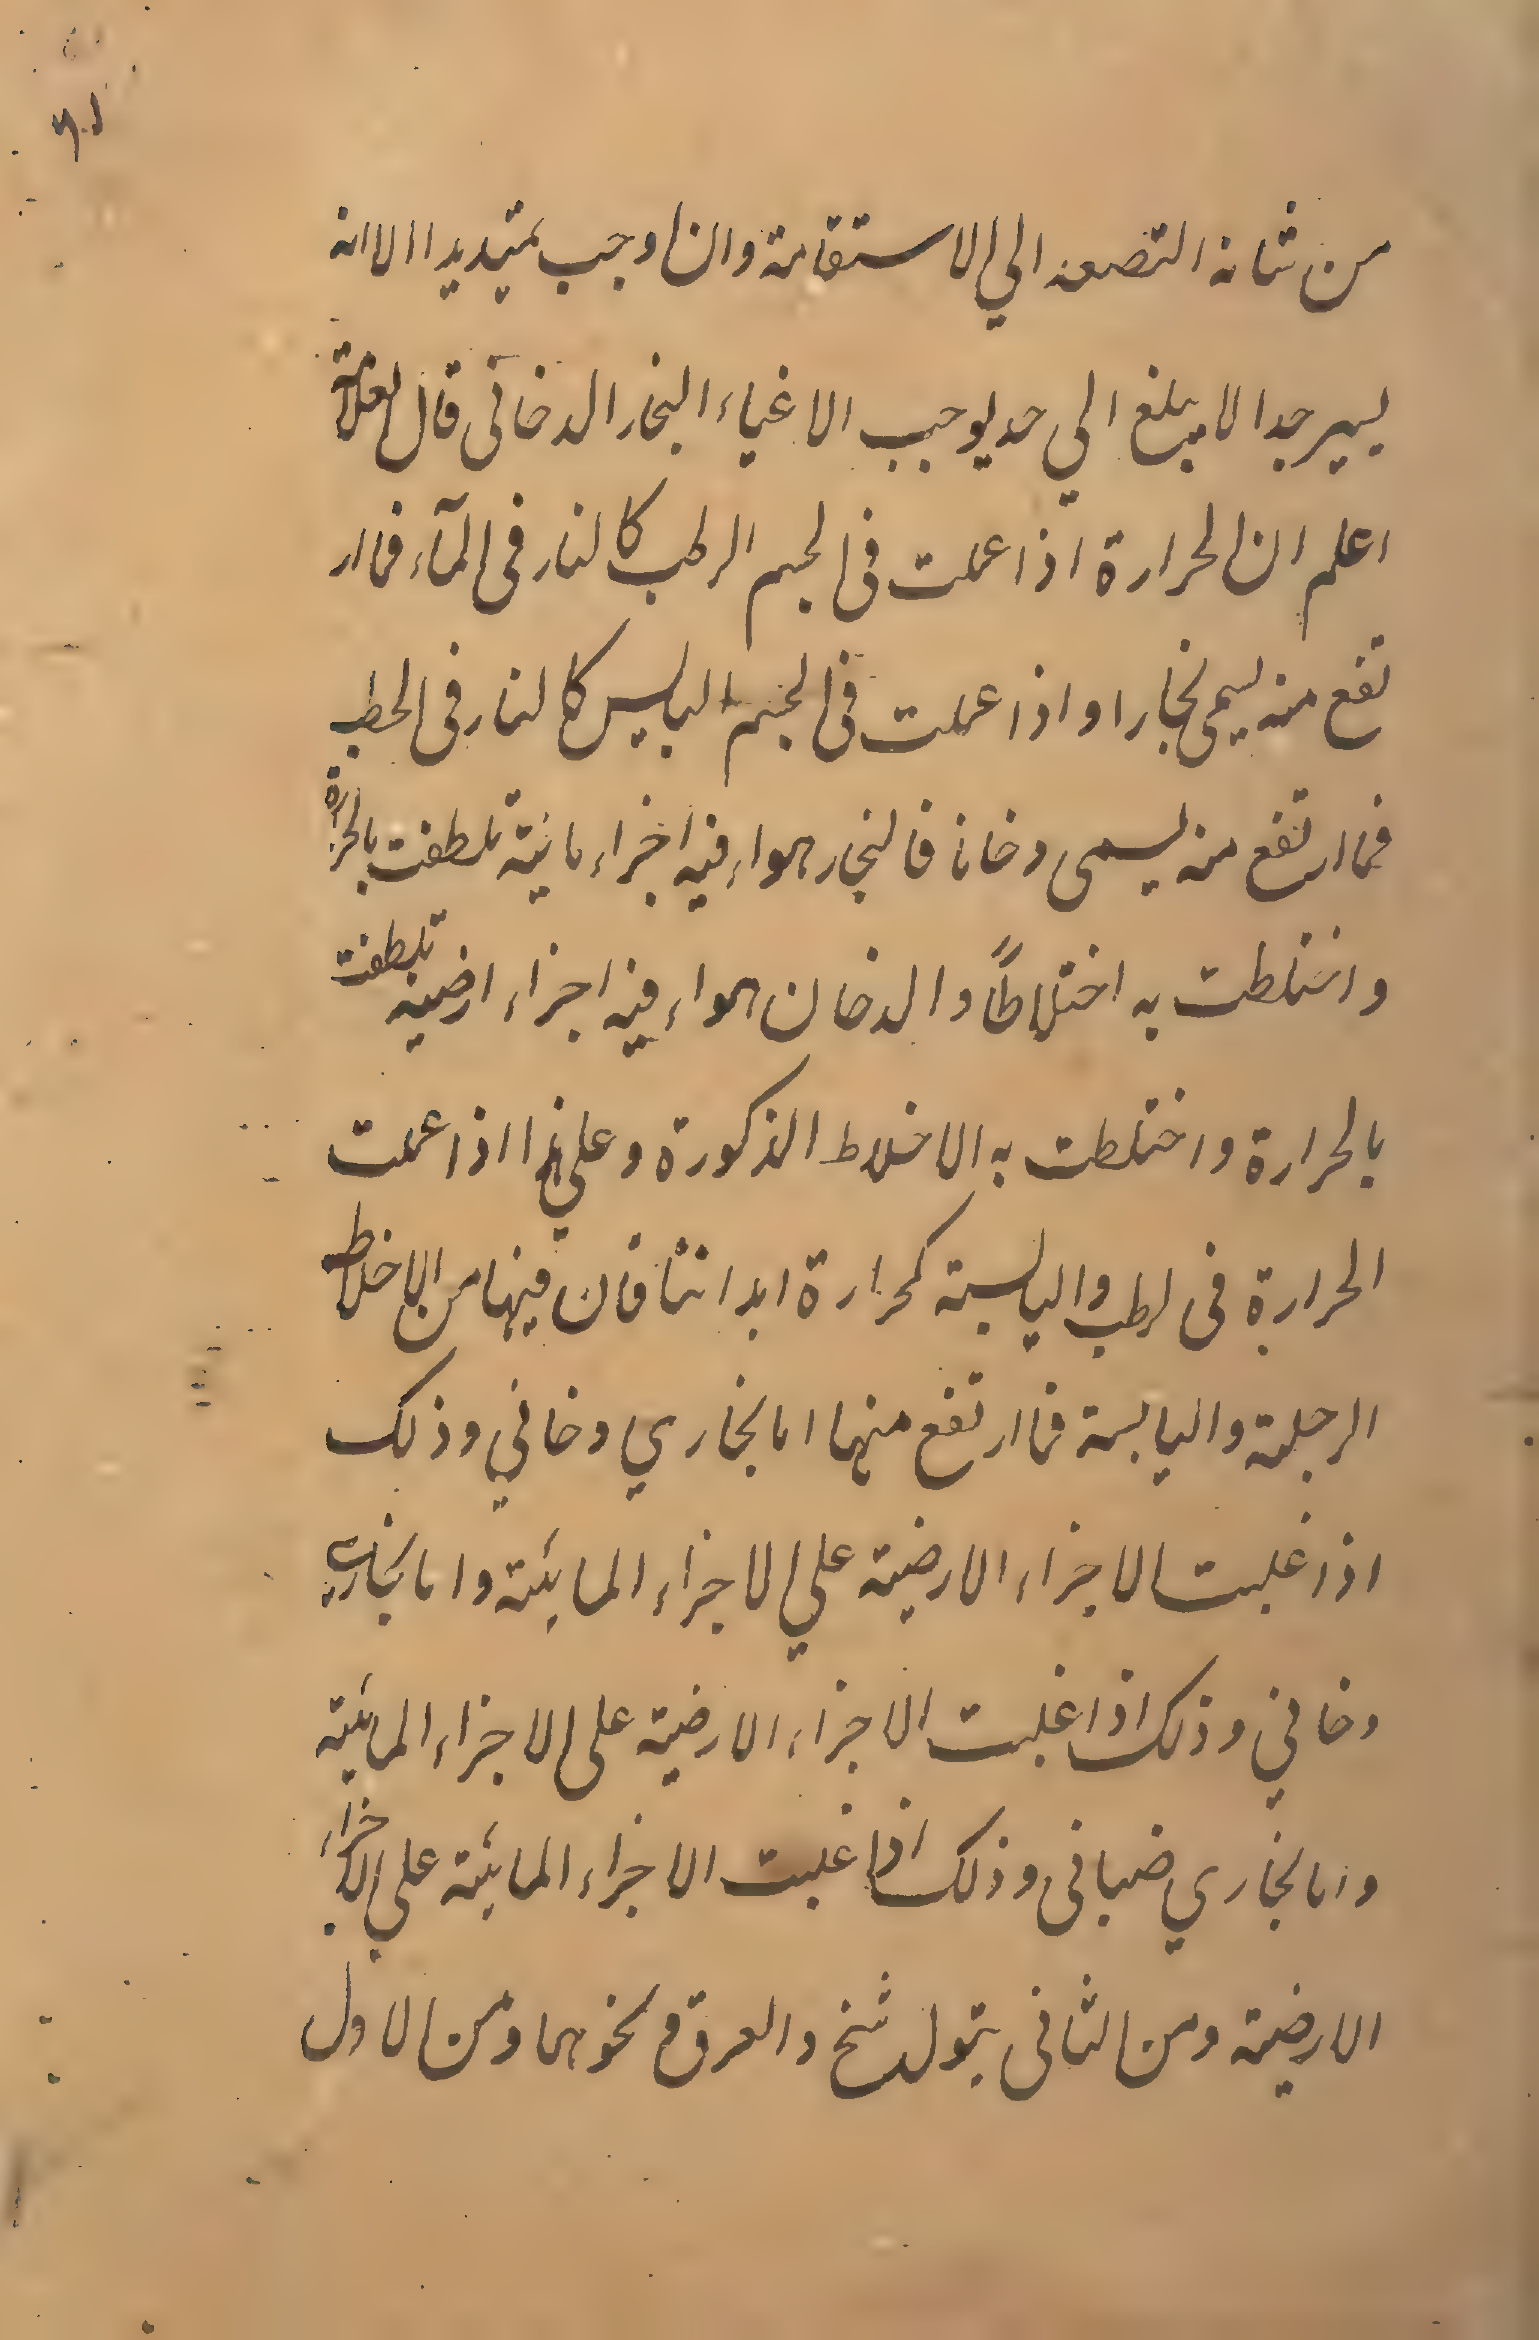 من شانه التصعد الي الاستقامة وان اوجب تمديدا الا انه
يسير جدا لا يبلغ الي حد يوجب الاغياء البخار الدخاني قال العلامة
اعلم ان الحرارة اذا عملت في الجسم الرطب كالنار في المآء فما ار
تفع منه يسمى بخارا واذا عملت في الجسم اليابس كالنار في الحطب
فما ارتفع منه يسمى دخانا فالبخار هواء فيه اجزاء مائية تلطفت بالحرارة
واختلطت به اختلاطاً والدخان هواء فيه اجزاء ارضية تلطفت
بالحرارة واختلطت به الاخلاط الذكورة وعلي هذا اذا عملت
الحرارة في لرطب واليابسة كحرارة ابداننا فان فيها من الاخلاط
الرطبة واليابسة فما ارتفع منها اما بخاري دخاني وذلك
اذا غلبت الاجزاء الارضية علي الاجزاء المائية واما بخاري
دخاني وذلك اذا غلبت الاجزاء الارضية على الاجزاء المائية
واما بخاري ضبابي وذلك اذا غلبت الاجزاء المائية علي الاجزاء
الارضية ومن الثاني يتولد شخ والعرق ونحوهما ومن الاول